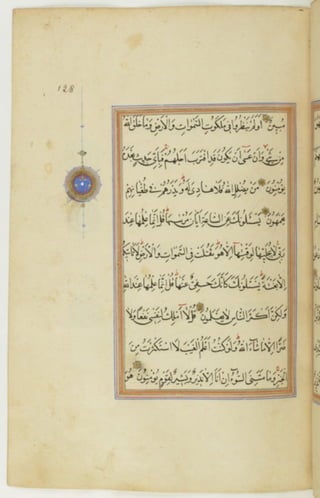 128
مبين اولم ينظروا في ملكوت السموات والارض وما خلق الله
من شيء وان عسى ان يكون قد اقترب اجلهم فباي حديث بعده
يؤمنون من يضلل الله فلا هادي له ويذرهم في طغيانهم
يعمهون يسئلونك عن الساعة ايان مرسيها قل انما علمها عند
ربي لا يجليها لوقتها الا هو ثقلت في السموات والارض لا تاتيكم
الا بغتة يسئلونك كانك حفي عنها قل انما علمها عند الله
ولكن اكثر الناس لا يعلمون قل لا املك لنفسي نفعا ولا
ضرا الا ما شاء الله ولو كنت اعلم الغيب لاستكثرت من
الخير وما مسني السوء ان انا الا نذير وبشير لقوم يؤمنون هو